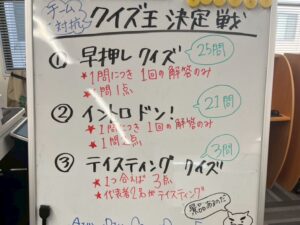 チーム対抗
クイズ王 決定戦
① 早押しクイズ 25問
★1問につき 1回の解答のみ
1問 1点
② イントロドン! 21問
★1問につき 1回の解答のみ
★1問
③ テイスティング クイズ 3問
★1つ合えば 3点
★代表者2名がテイスティング
景品あるのだ